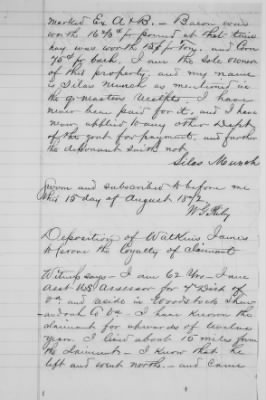 marked Ex A & B. - Bacon was
worth 16 2/3¢ per pound at that time
hay was worth 15$ pr Ton, and Corn
75¢ pr bush. I am the sole owner
of this property, and my name
is Silas Munch as mentioned in
the qr masters receipts. I have
never been paid for it, and I have
never applied to any other Dept
of the govt for payment, and further
the deponent saith not
Silas Munch
Sworn and subscribed to before me
this 15 day of August 1872
Deposition of Watkins James
to prove the loyalty of claimant
Witness says - I am 62 yrs - I am
Asst US Assessor for Dist of
Va and reside in Woodstock Shen-
andoah Co Va - I have known the
claimant for upwards of twelve
years. I lived about 15 miles from
the claimant - I know that he
left and went north - and came